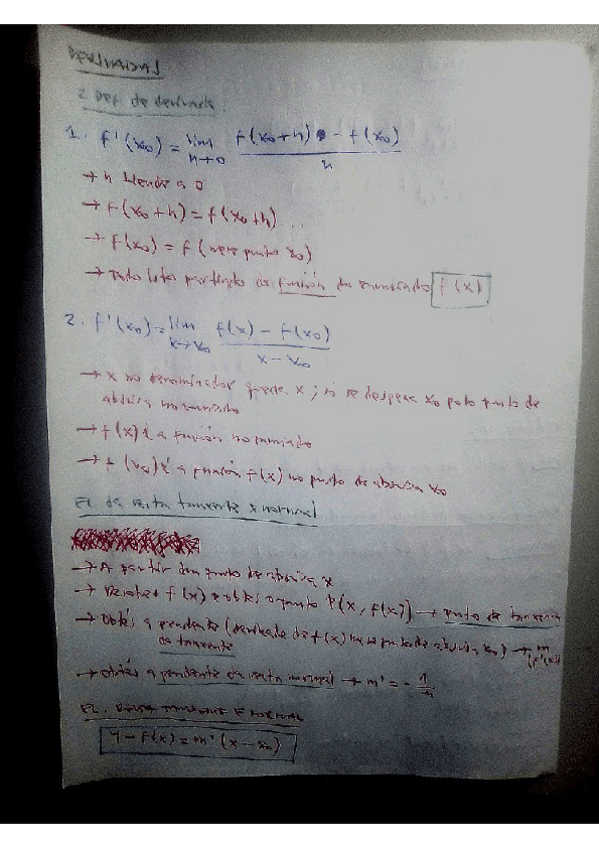 DERIVADAS
2 Def. de derivada:
1. f'(x₀) = lim h→0 f(x₀+h) - f(x₀) / h
→ h tende a 0
→ f(x₀+h) = f(x₀+h) ..
→ f(x₀) = f (nese punto x₀)
→ Todo partindo da función do enunciado f(x)
2. f'(x₀) = lim x→x₀ f(x) - f(x₀) / x - x₀
→ x no denominador queda x; só se despexa x₀ polo punto de
abscisa no enunciado
→ f(x) é a función no enunciado
→ f(x₀) é a función f(x) no punto de abscisa x₀
EC. da recta tanxente e normal
→ A partir dun punto de abscisa x
→ f(x) e obtés o punto P(x, f(x)) → punto de tanxencia
→ Obtés a pendente (derivada de f(x) nese punto de abscisa x₀) → m (f'(x))
da tanxente
→ Obtés a pendente da recta normal → m' = - 1/m
EC. RECTA TANXENTE E NORMAL
Y - f(x) = m' (x - x₀)